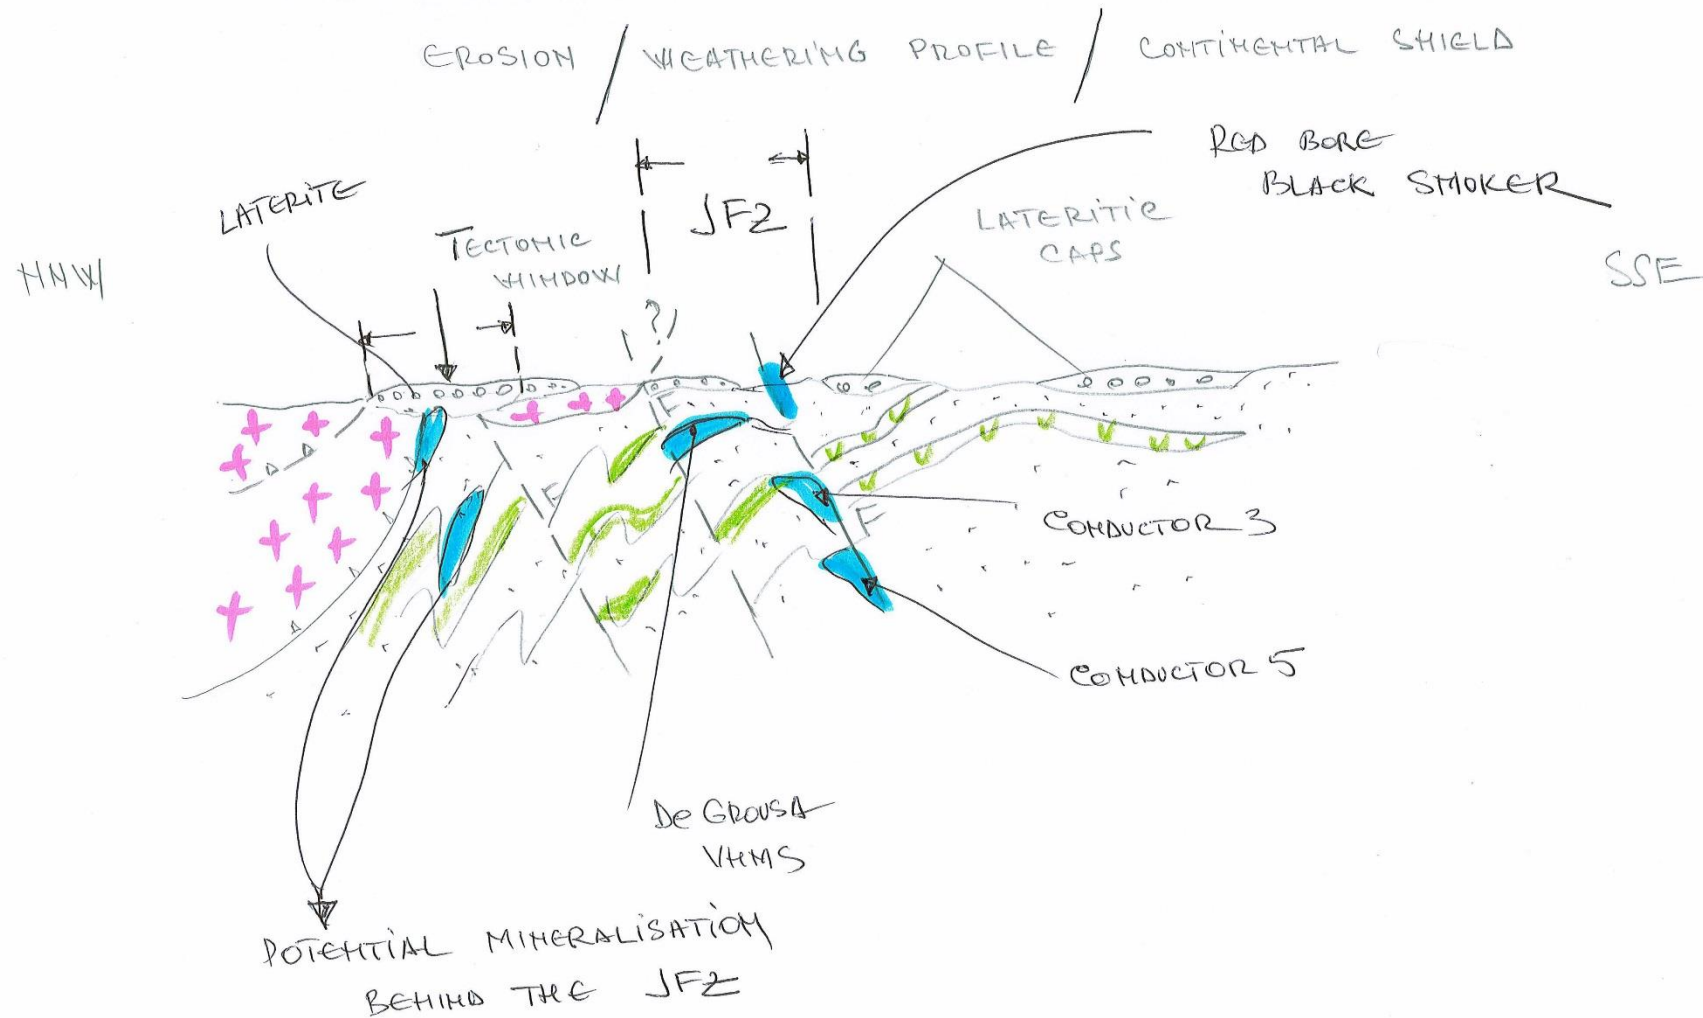 EROSION / WEATHERING PROFILE / CONTINENTAL SHIELD
RED BORE
BLACK SMOKER
LATERITE
JFZ
LATERITIC
CAPS
TECTONIC
WINDOW
NNW
SSE
?
F
F
F
CONDUCTOR 3
CONDUCTOR 5
De GROUSA
VHMS
POTENTIAL MINERALISATION
BEHIND THE JFZ